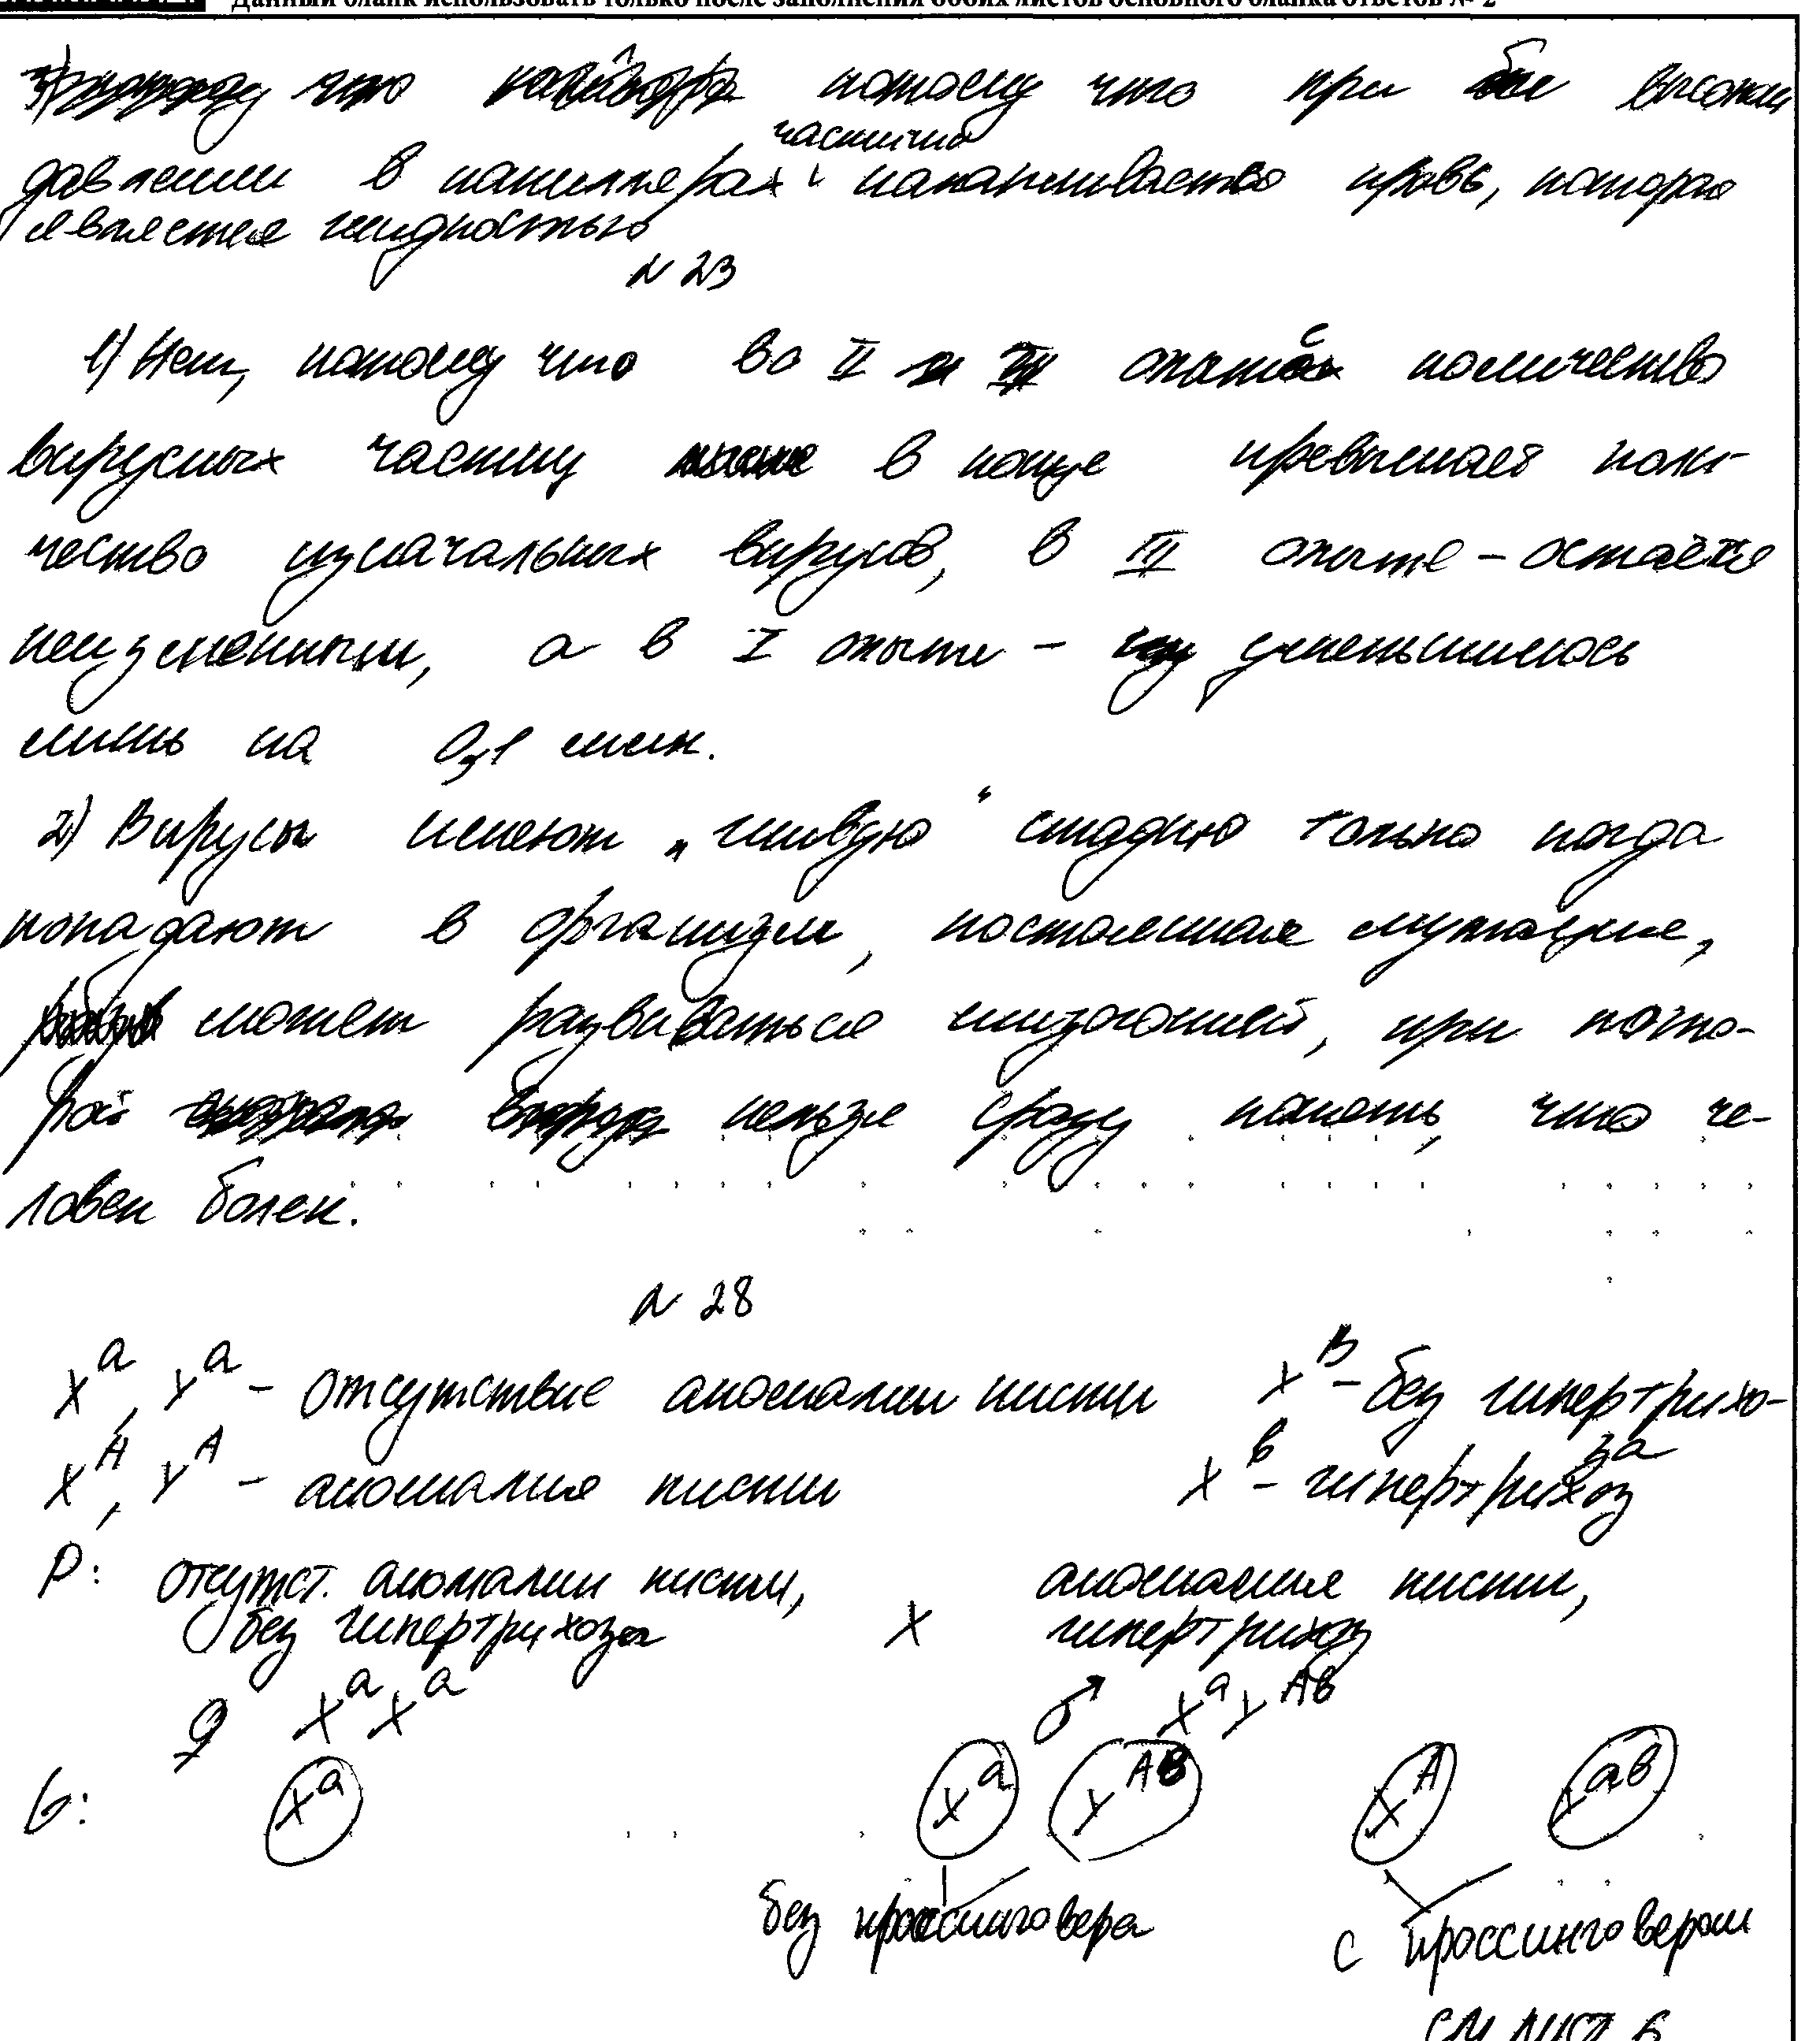 Данный бланк использовать только после заполнения обоих листов основного бланка ответов № 2
что потому что при высоком
частично
давлении в капиллярах накапливается кровь, которая
является жидкостью
N 23
1) Нет, потому что во II опыте количество
вирусных частиц в конце превышает коли-
чество изначальных вирусов, в III опыте - остаётся
неизменным, а в I опыте - уменьшилось
лишь на 0,1 млн.
2) Вирусы имеют "живую" стадию только когда
попадают в организм, постоянная мутация,
может развиваться шизогонией, при кото-
рой нельзя сразу понять, что че-
ловек болен.
N 28
X^a, Y^a - отсутствие аномалии кисти X^B - без гипертрихо-
за
X^A, Y^A - аномалия кисти X^b - гипертрихоз
P: отсутст. аномалии кисти, аномалия кисти,
без гипертрихоза X гипертрихоз
♀ X^a X^a ♂ X^a Y^Ab
G: X^a X^a Y^Ab X^A Y^ab
без кроссинговера
с кроссинговером
см лист 6